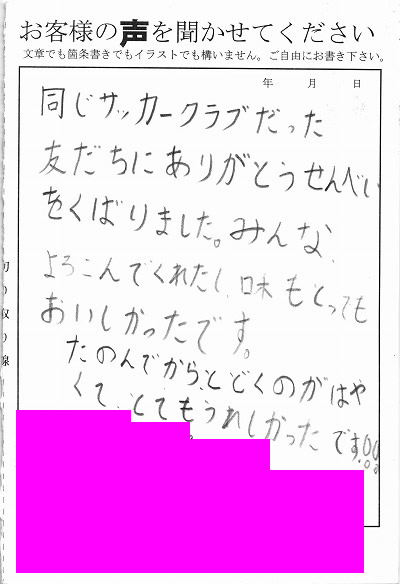 お客様の声を聞かせてください
文章でも箇条書きでもイラストでも構いません。ご自由にお書き下さい。
年　月　日
同じサッカークラブだった
友だちにありがとうせんべい
をくばりました。みんな、
よろこんでくれたし、味もとっても
おいしかったです。
たのんでから、とどくのがはや
くて、とてもうれしかったです!!
切り取り線